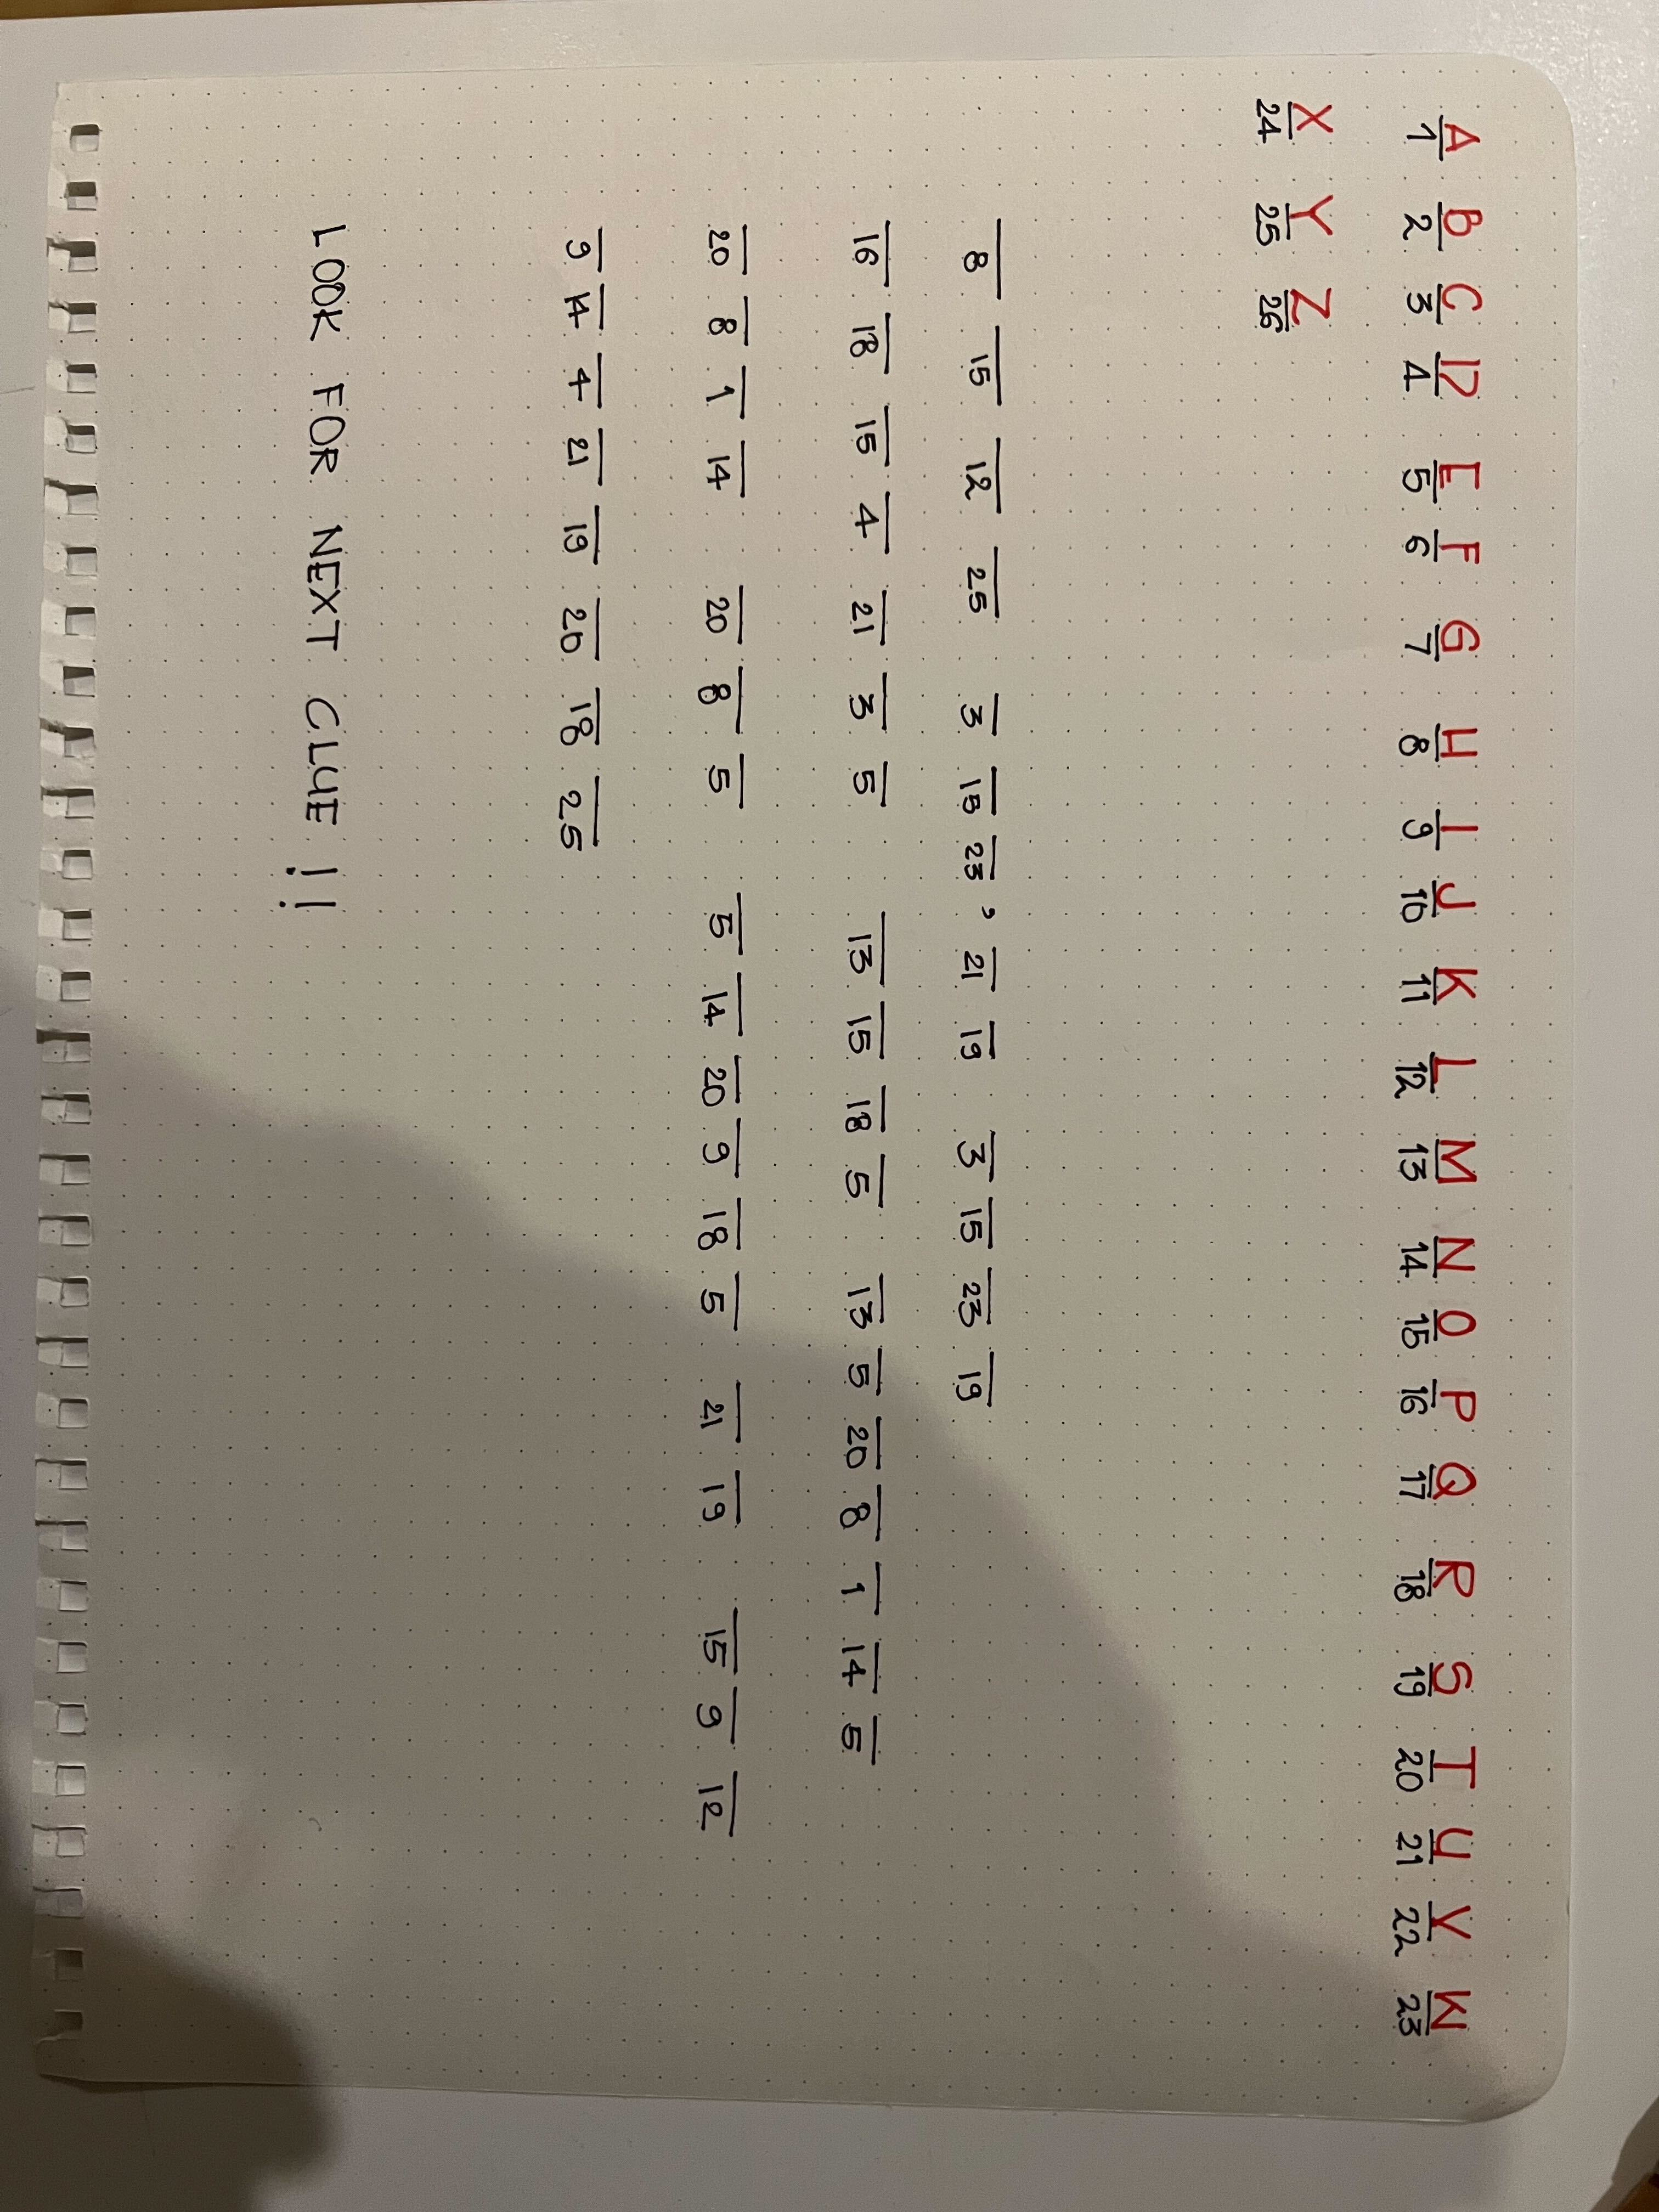 A B C D E F G H I J K L M N O P Q R S T U V W
1 2 3 4 5 6 7 8 9 10 11 12 13 14 15 16 17 18 19 20 21 22 23
X Y Z
24 25 26
8 15 12 25 3 15 23 , 21 19 3 15 23 19
16 18 15 4 21 3 5 13 15 18 5 13 5 20 8 1 14 5
20 8 1 14 20 8 5 5 14 20 9 18 5 21 19 15 9 12
9 14 4 21 19 20 18 25
LOOK FOR NEXT CLUE !!